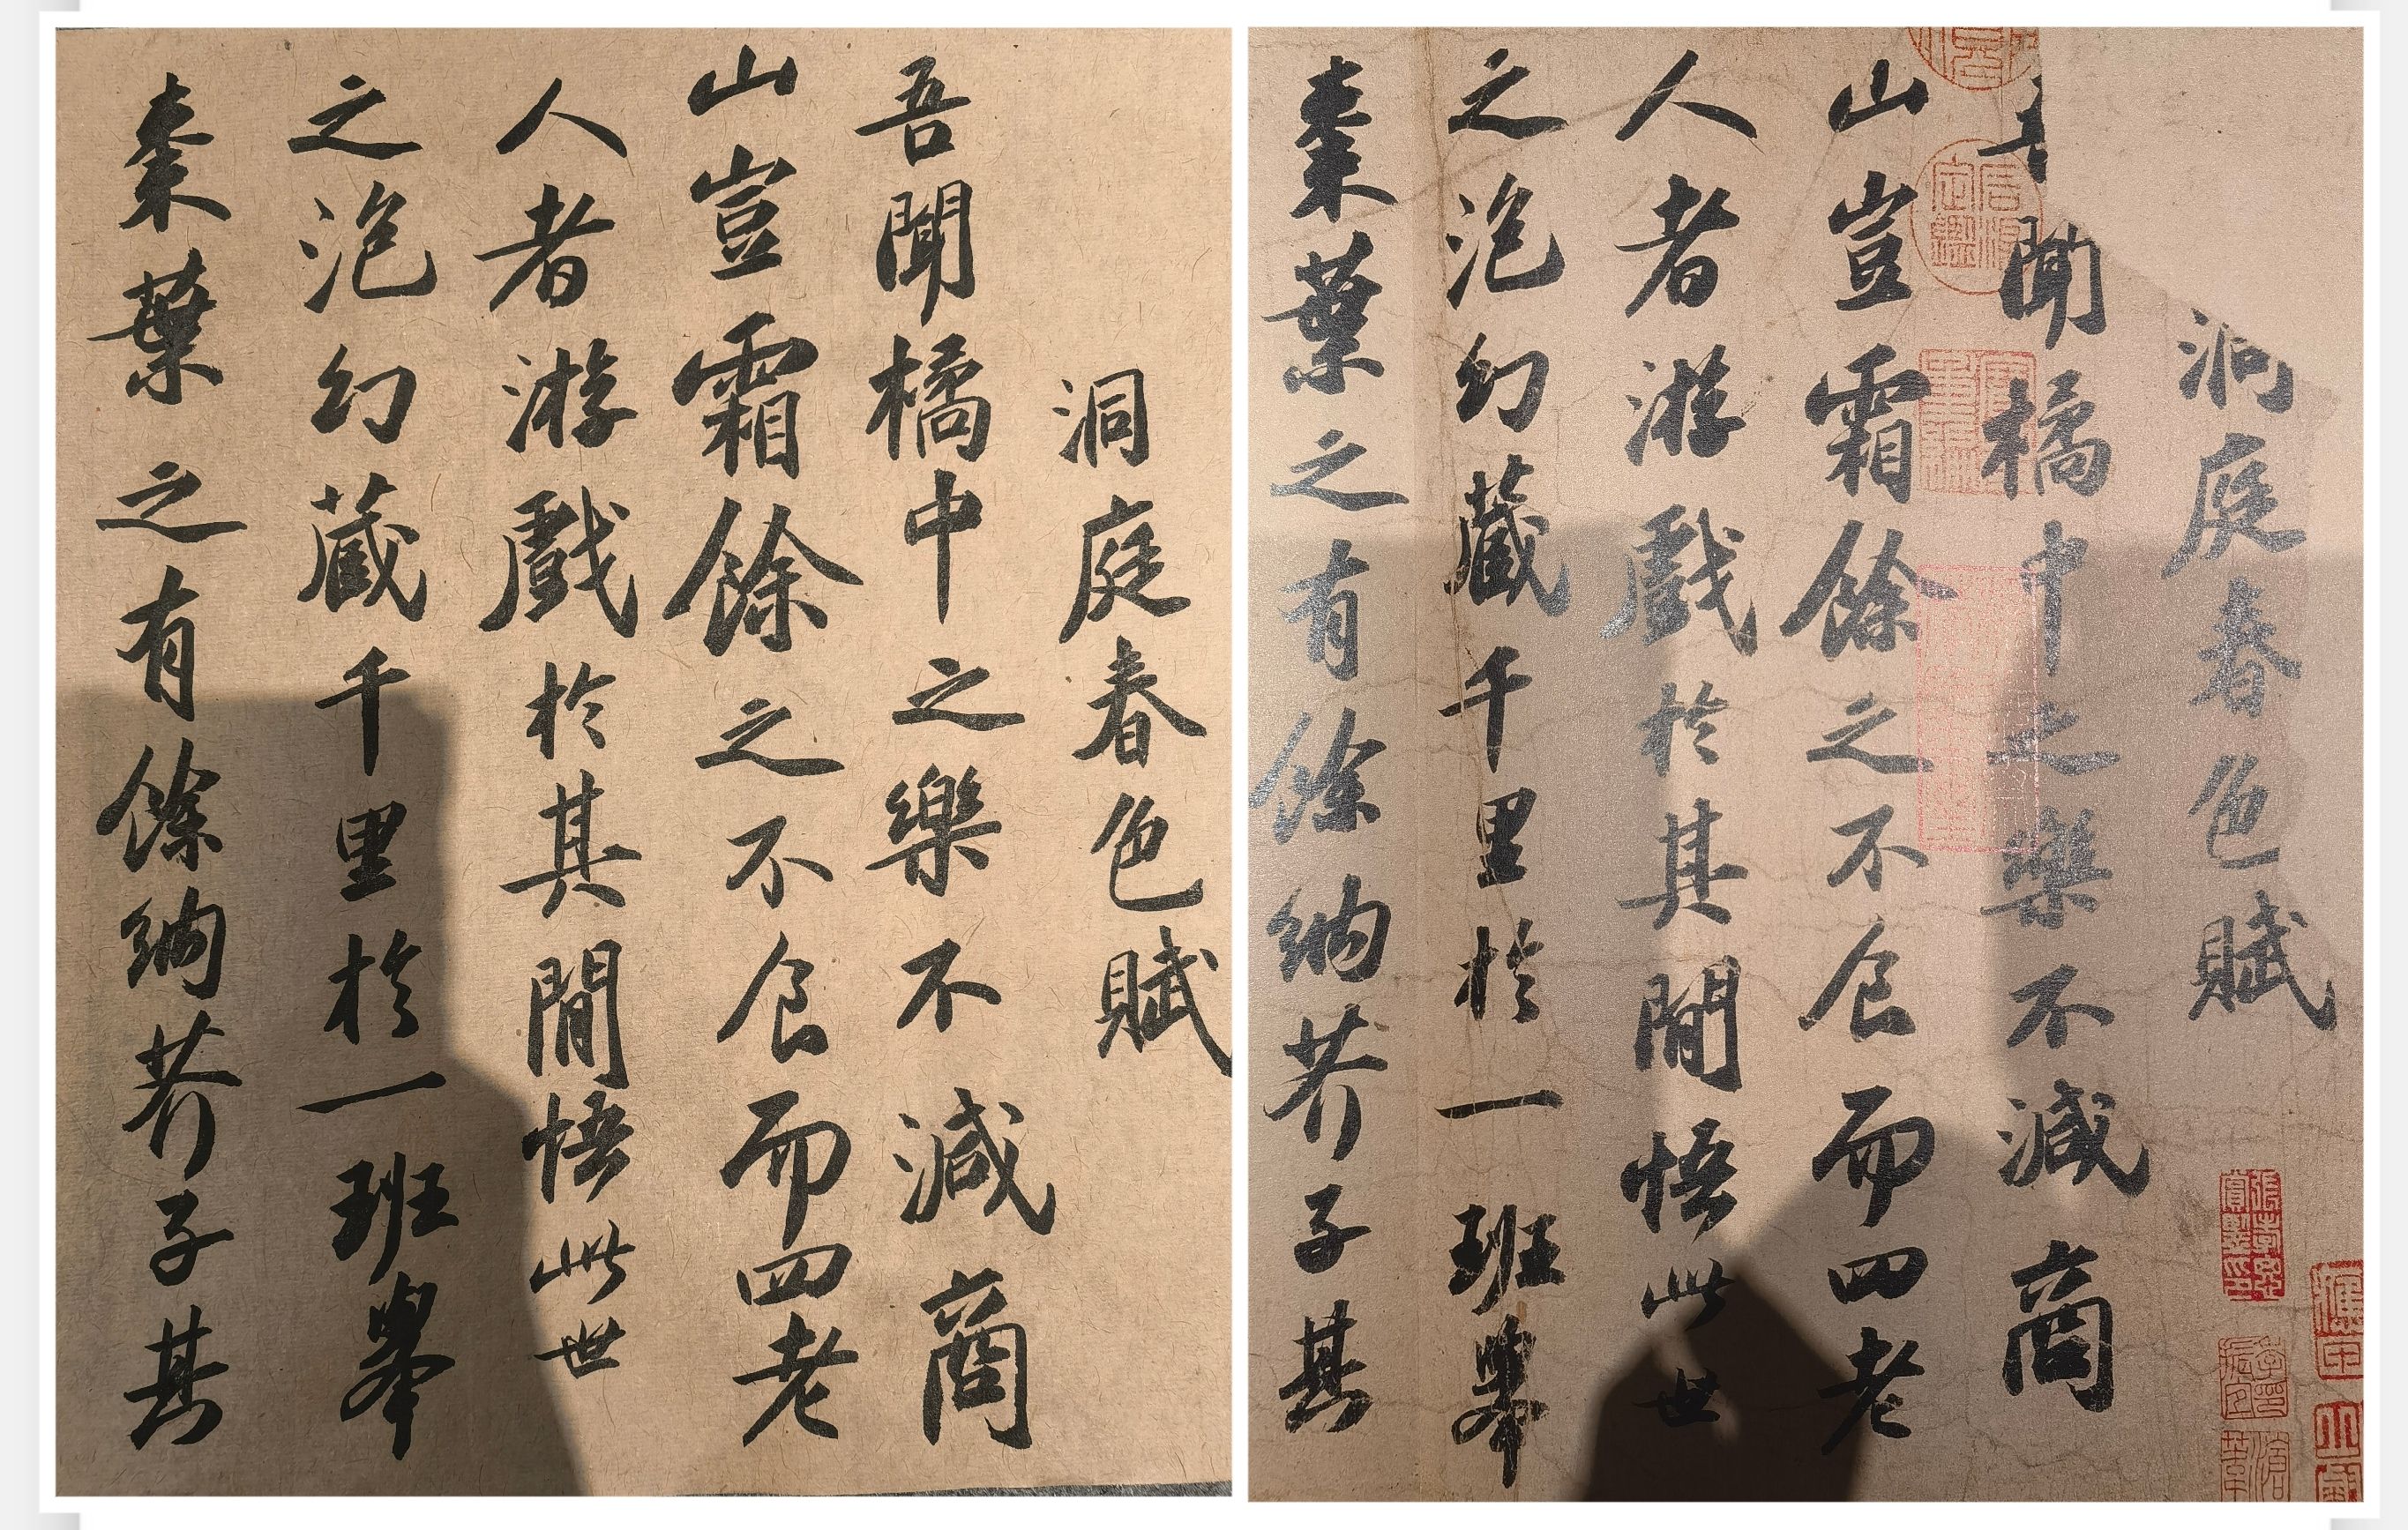 洞庭春色賦
吾聞橘中之樂不減商
山豈霜餘之不食而四老
人者游戲於其閒悟此世
之泡幻藏千里於一班舉
棗葉之有餘納芥子其
洞庭春色賦
聞橘中之樂不減商
山豈霜餘之不食而四老
人者游戲於其閒悟此世
之泡幻藏千里於一班舉
棗葉之有餘納芥子其